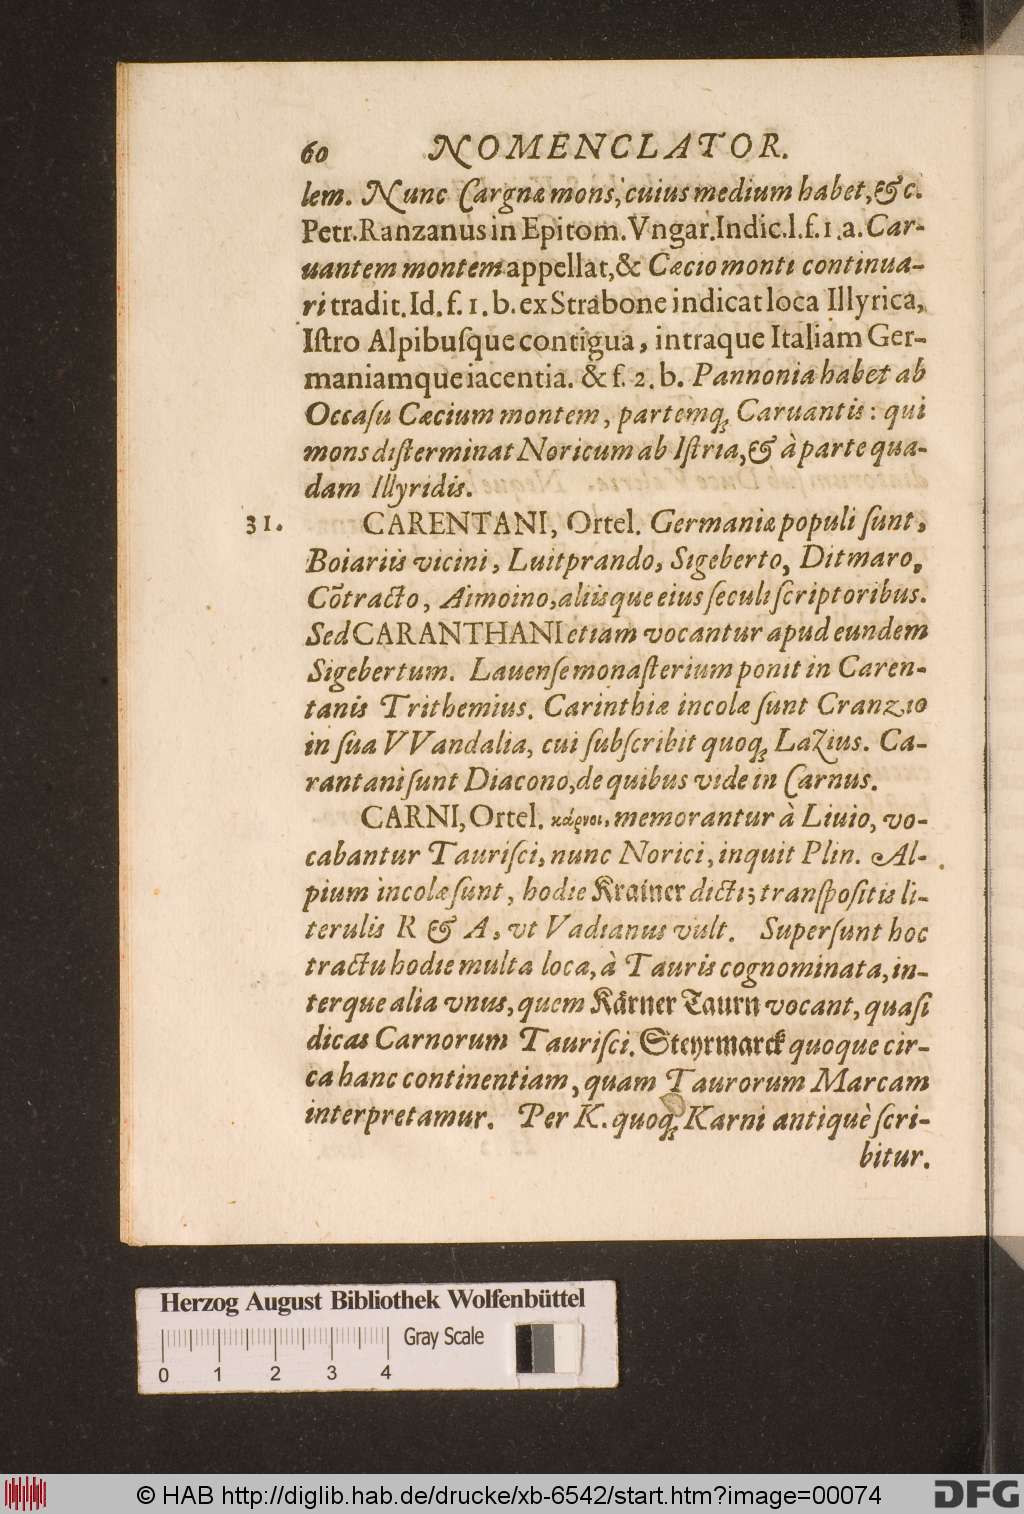 60 NOMENCLATOR.
lem. Nunc Cargnæ mons, cuius medium habet, &c.
Petr. Ranzanus in Epitom. Vngar. Indic. l. f. 1. a. Car-
uantem montem appellat, & Cæcio monti continua-
ri tradit. Id. f. 1. b. ex Strabone indicat loca Illyrica,
Iſtro Alpibuſque contigua, intraque Italiam Ger-
maniamque iacentia. & f. 2. b. Pannonia habet ab
Occaſu Cæcium montem, partemq; Caruantis: qui
mons diſterminat Noricum ab Iſtria, & à parte qua-
dam Illyridis.
31. CARENTANI, Ortel. Germaniæ populi ſunt,
Boiariis vicini, Luitprando, Sigeberto, Ditmaro,
Cõtracto, Aimoino, aliisque eius ſeculi ſcriptoribus.
Sed CARANTHANI etiam vocantur apud eundem
Sigebertum. Lauenſe monaſterium ponit in Caren-
tanis Trithemius. Carinthiæ incolæ ſunt Cranzio
in ſua VVandalia, cui ſubſcribit quoq; Lazius. Ca-
rantani ſunt Diacono, de quibus vide in Carnus.
CARNI, Ortel. κάρνοι, memorantur à Liuio, vo-
cabantur Tauriſci, nunc Norici, inquit Plin. Al-
pium incolæ ſunt, hodie Krainer dicti; tranſpoſitis li-
terulis R & A, vt Vadianus vult. Superſunt hoc
tractu hodie multa loca, à Tauris cognominata, in-
terque alia vnus, quem Kärner Taurn vocant, quaſi
dicas Carnorum Tauriſci. Steyrmarck quoque cir-
ca hanc continentiam, quam Taurorum Marcam
interpretamur. Per K. quoq; Karni antiquè ſcri-
bitur.
Herzog August Bibliothek Wolfenbüttel
Gray Scale
0 1 2 3 4
© HAB http://diglib.hab.de/drucke/xb-6542/start.htm?image=00074
DFG